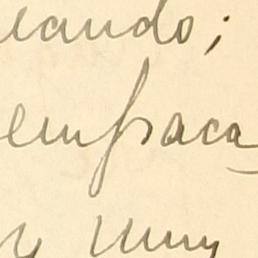 eando;
empaca
y muy